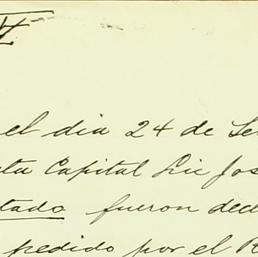 IV
el dia 24 de Se
ta Capital Lic Jos
tado fueron decl
pedido por el R